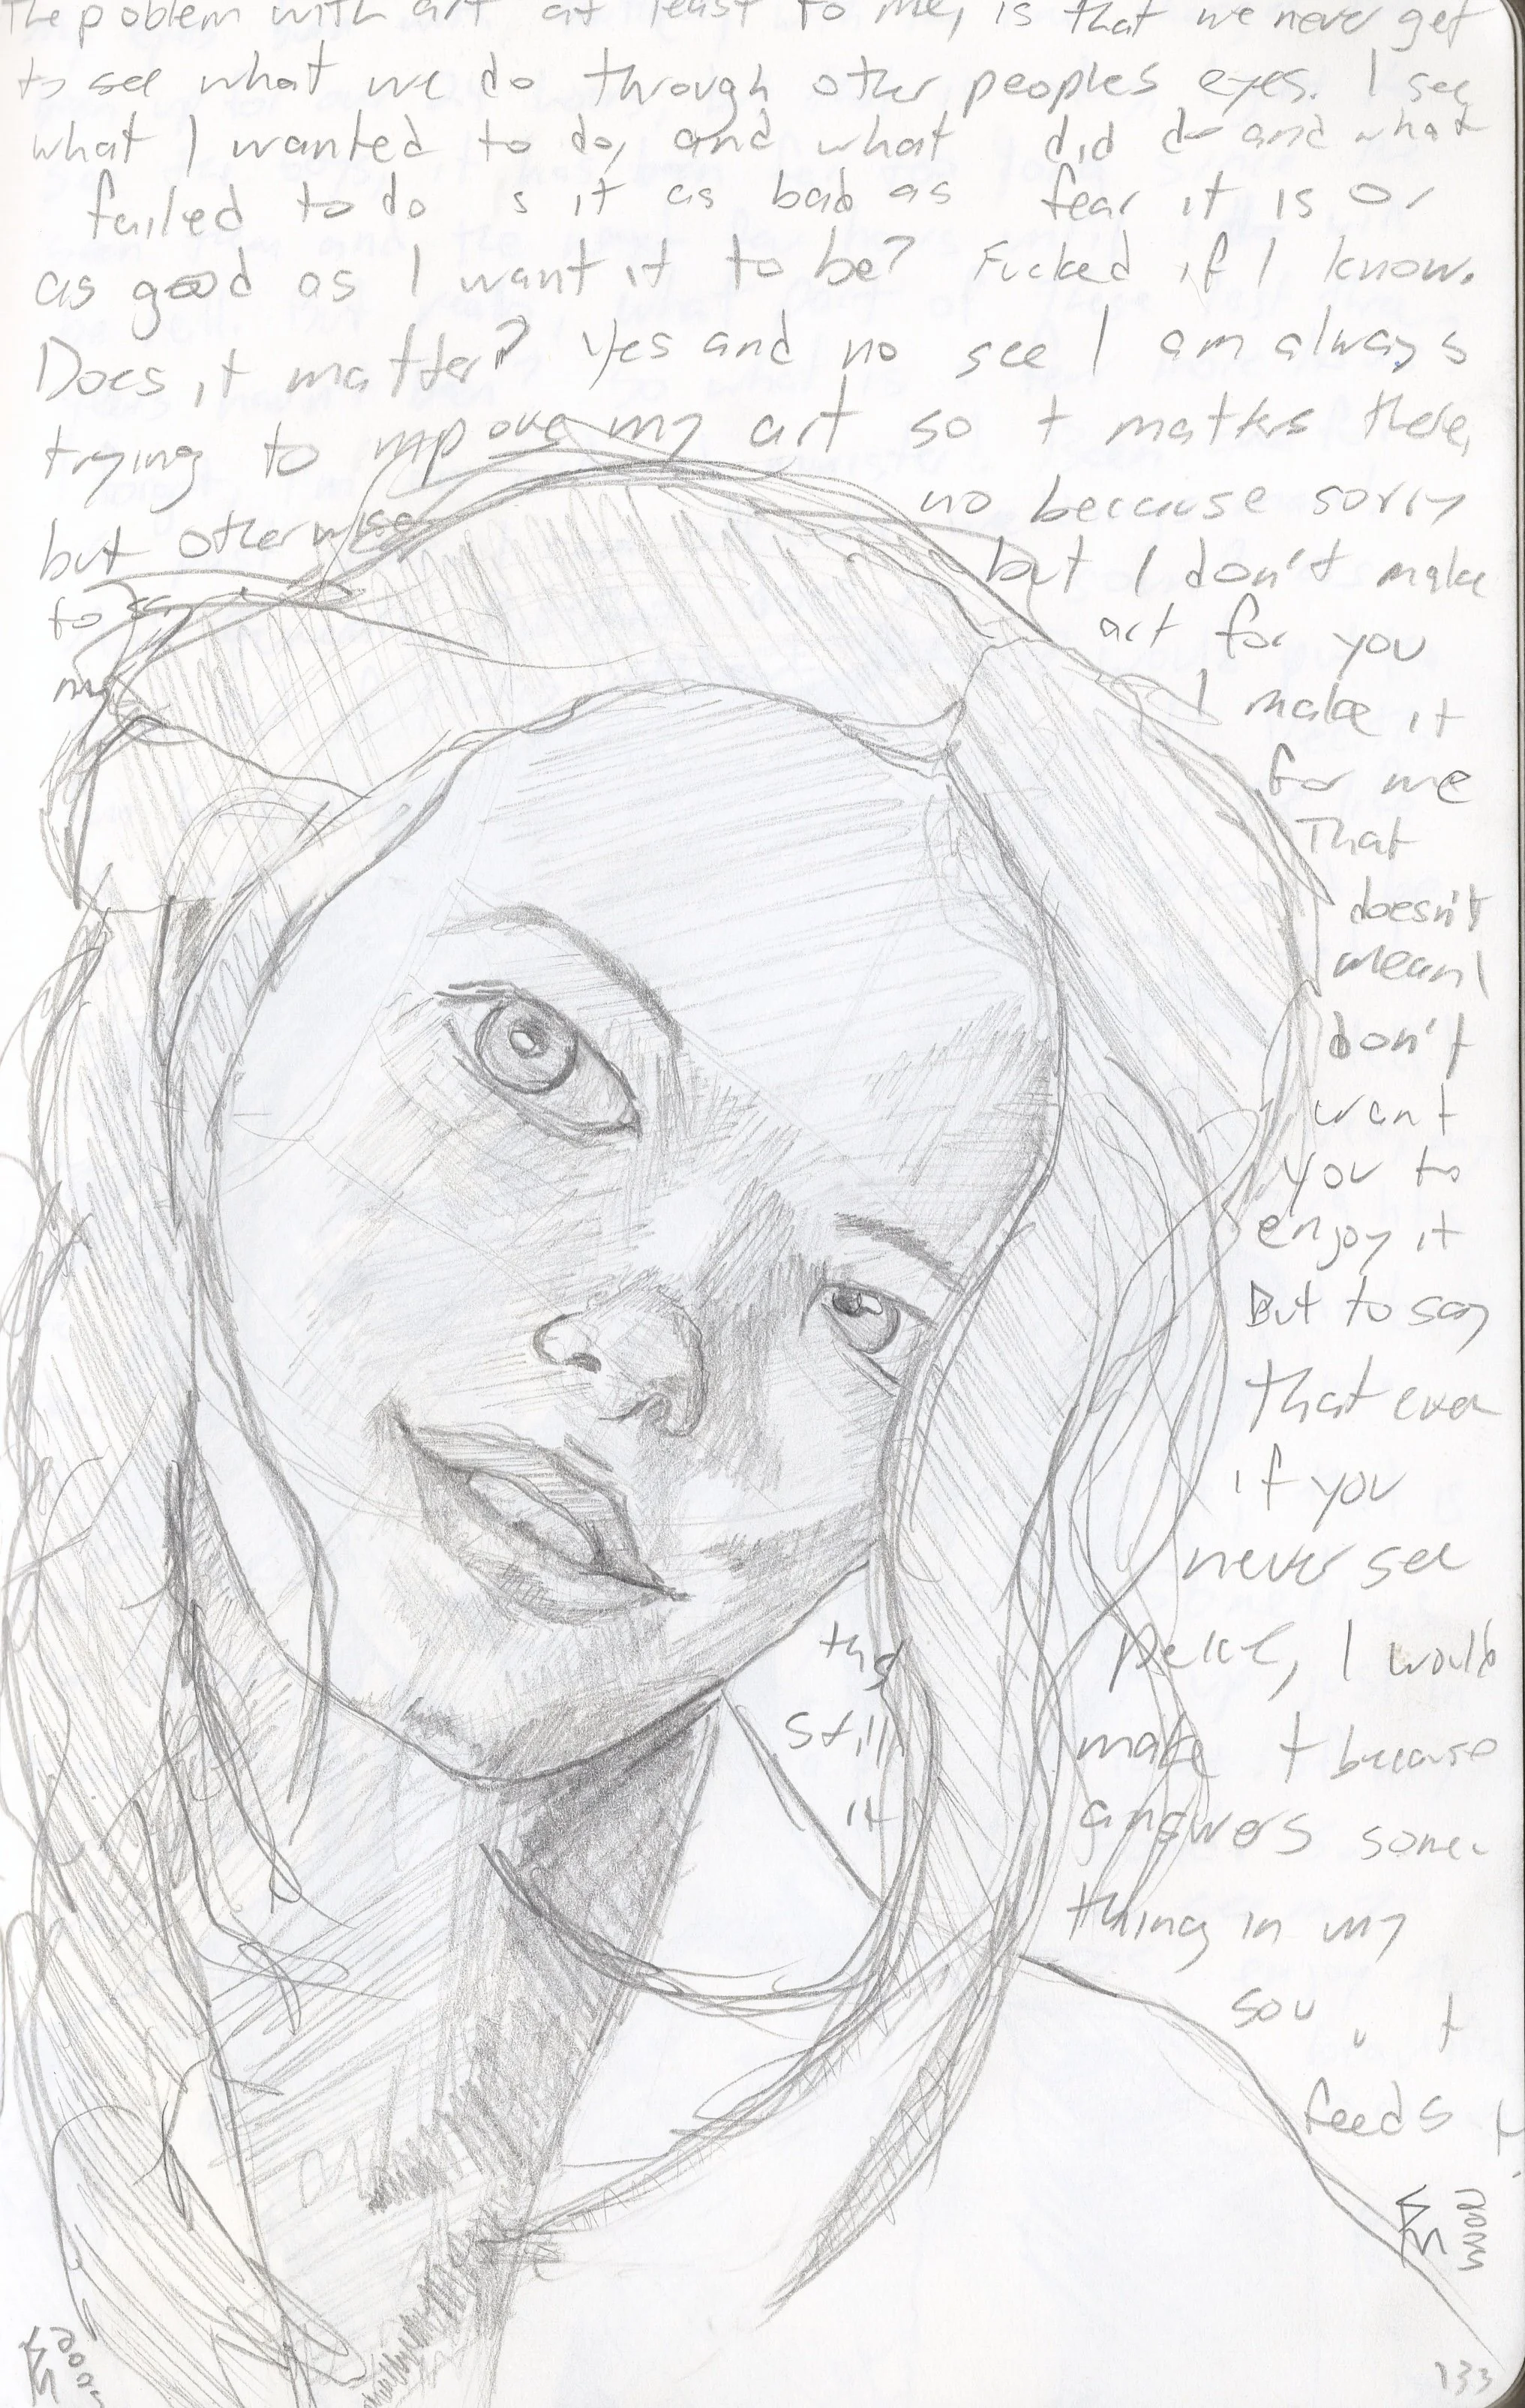 The problem with art at least to me, is that we never get
to see what we do through other peoples eyes. I see
what I wanted to do, and what did do and what
failed to do s it as bad as fear it is or
as good as I want it to be? Fucked if I know.
Does it matter? Yes and no see I am always
trying to mpove my art so t matters there,
but otherwise no because sorry
to but I don't make
my art for you
I make it
for me
That
doesn't
mean I
don't
want
you to
enjoy it
But to say
that even
if you
never see
this I would
still make t because
it answers some-
thing in my
sou t
feeds
133